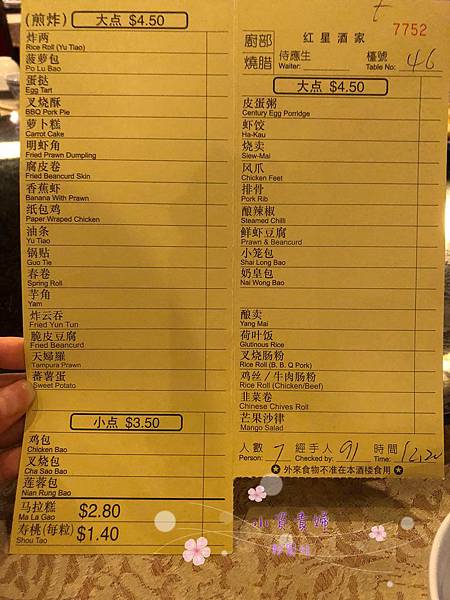 (煎炸) 大点 $4.50
炸两
Rice Roll (Yu Tiao)
菠萝包
Po Lu Bao
蛋挞
Egg Tart
叉烧酥
BBQ Pork Pie
萝卜糕
Carrot Cake
明虾角
Fried Prawn Dumpling
腐皮卷
Fried Beancurd Skin
香蕉虾
Banana With Prawn
纸包鸡
Paper Wraped Chicken
油条
Yu Tiao
锅贴
Guo Tie
春卷
Spring Roll
芋角
Yam
炸云吞
Fried Yun Tun
脆皮豆腐
Fried Beancurd
天婦羅
Tampura Prawn
蕃薯蛋
Sweet Potato
小点 $3.50
鸡包
Chicken Bao
叉烧包
Cha Sao Bao
莲蓉包
Nian Rung Bao
马拉糕 $2.80
Ma La Gao
寿桃(每粒) $1.40
Shou Tao
7752
廚部 红星酒家
燒腊 侍應生 檯號
Waiter: Table No: 46
大点 $4.50
皮蛋粥
Century Egg Porridge
虾饺
Ha-Kau
烧卖
Siew-Mai
风爪
Chicken Feet
排骨
Pork Rib
酿辣椒
Steamed Chilli
鲜虾豆腐
Prawn & Beancurd
小笼包
Shai Long Bao
奶皇包
Nai Wong Bao
酿卖
Yang Mai
荷叶饭
Glutinous Rice
叉烧肠粉
Rice Roll (B. B. Q Pork)
鸡丝/牛肉肠粉
Rice Roll (Chicken/Beef)
韭菜卷
Chinese Chives Roll
芒果沙律
Mango Salad
人數 7 經手人 91 時間 12,20
Person: Checked by: Time:
外来食物不准在本酒楼食用
小資貴婦